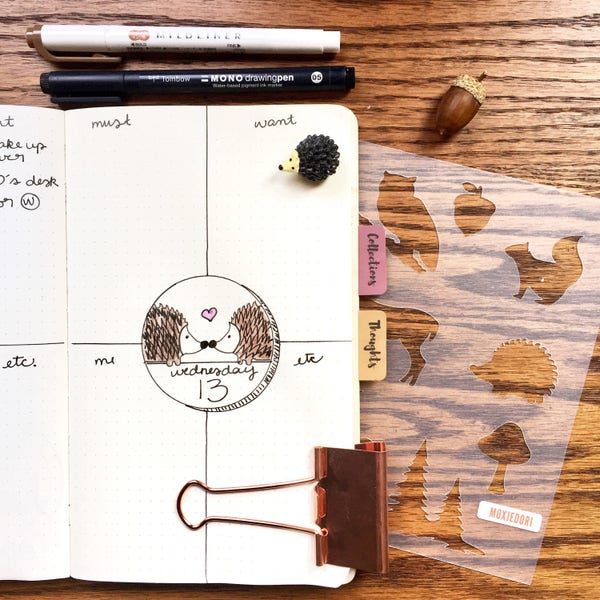 MILDLINER
BOLD
FINE
Tombow MONO drawing pen 05
Water-based pigment ink marker
must
want
ake up
D's desk
or W
Collections
Thoughts
etc.
me
etc
wednesday
13
MOXIEDORI